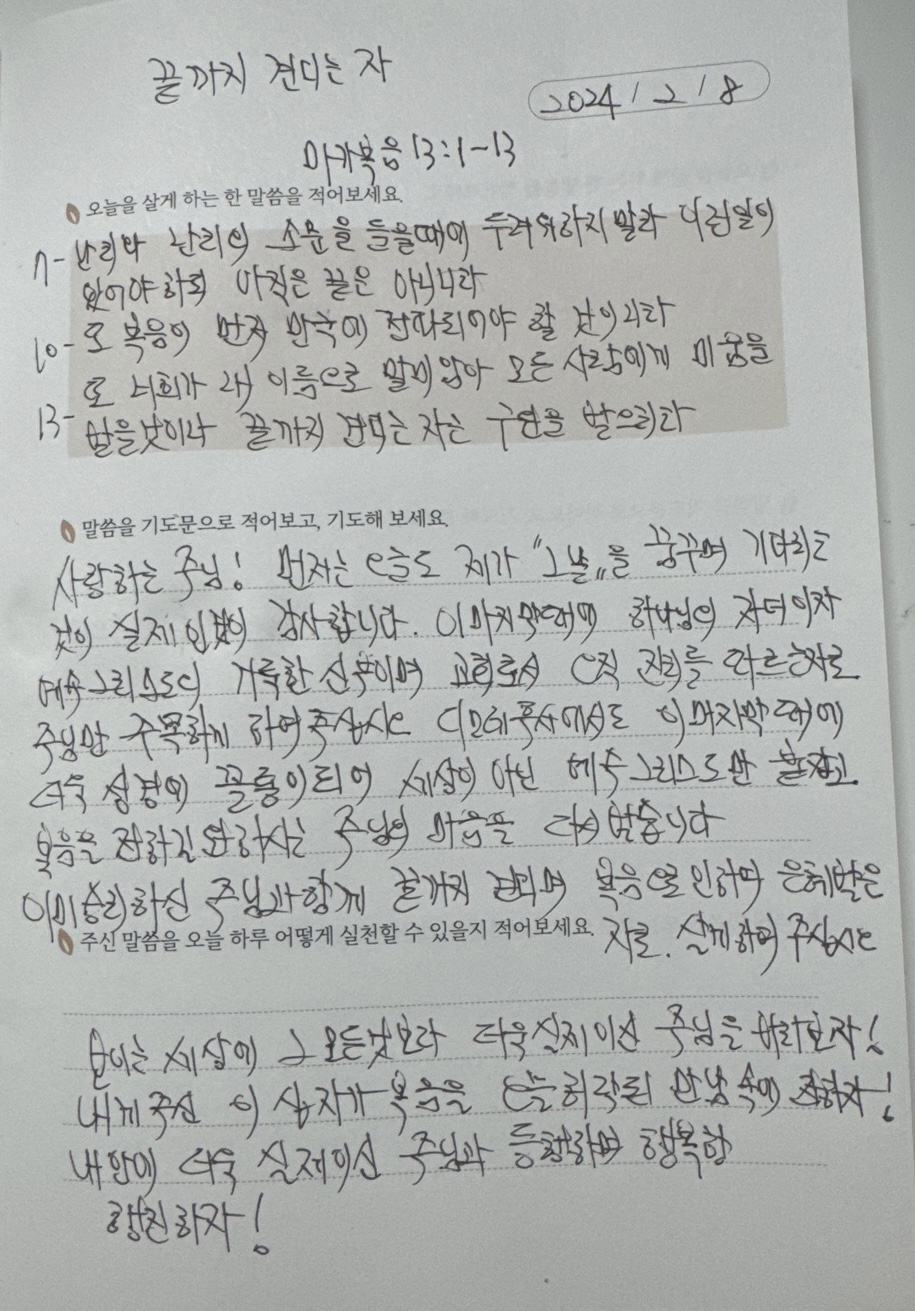 끝까지 견디는 자
2024 / 2 / 8
마가복음 13:1-13
오늘을 살게 하는 한 말씀을 적어보세요.
7- 난리와 난리의 소문을 들을때에 두려워하지말라 이런일이
있어야하되 아직은 끝은 아니니라
10- 또 복음이 먼저 만국에 전파되어야 할 것이니라
또 너희가 내 이름으로 말미암아 모든 사람에게 미움을
13- 받을것이나 끝까지 견디는 자는 구원을 받으리라
말씀을 기도문으로 적어보고, 기도해 보세요.
사랑하는 주님! 먼저는 오늘도 제가 "그날"을 꿈꾸며 기다리는
것이 실제인것이 감사합니다. 이마지막때에 하나님의 자녀이자
예수그리스도의 거룩한 신부이며 교회로서 오직 진리를 따르는자로
주님만 주목하게 하여주십시오 디모데후서에서도 이 마지막 때에
더욱 성경에 꼴통이되어 세상이 아닌 예수그리스도만
복음을 전하길 원하시는 주님의 마음을 다시 받습니다
이미승리하신 주님과함께 끝까지 견디며 복음으로 인하여 은혜받은
자로. 살게하여 주십시오
주신 말씀을 오늘 하루 어떻게 실천할 수 있을지 적어보세요.
보이는 세상에 그 모든것보다 더욱실제이신 주님을 바라보자!
내게주신 이 십자가 복음을 오늘허락된 만남 속에 전하자!
내안에 더욱 실제이신 주님과 동행하며 행복한
행진하자!